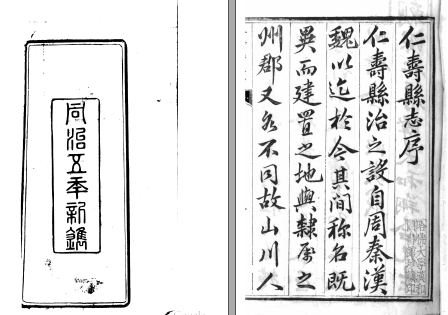 同治五年新鐫
仁壽縣志序
仁壽縣治之設自周秦漢
魏以迄於今其間称名既
異而建置之地與隸屬之
州郡又各不同故山川人